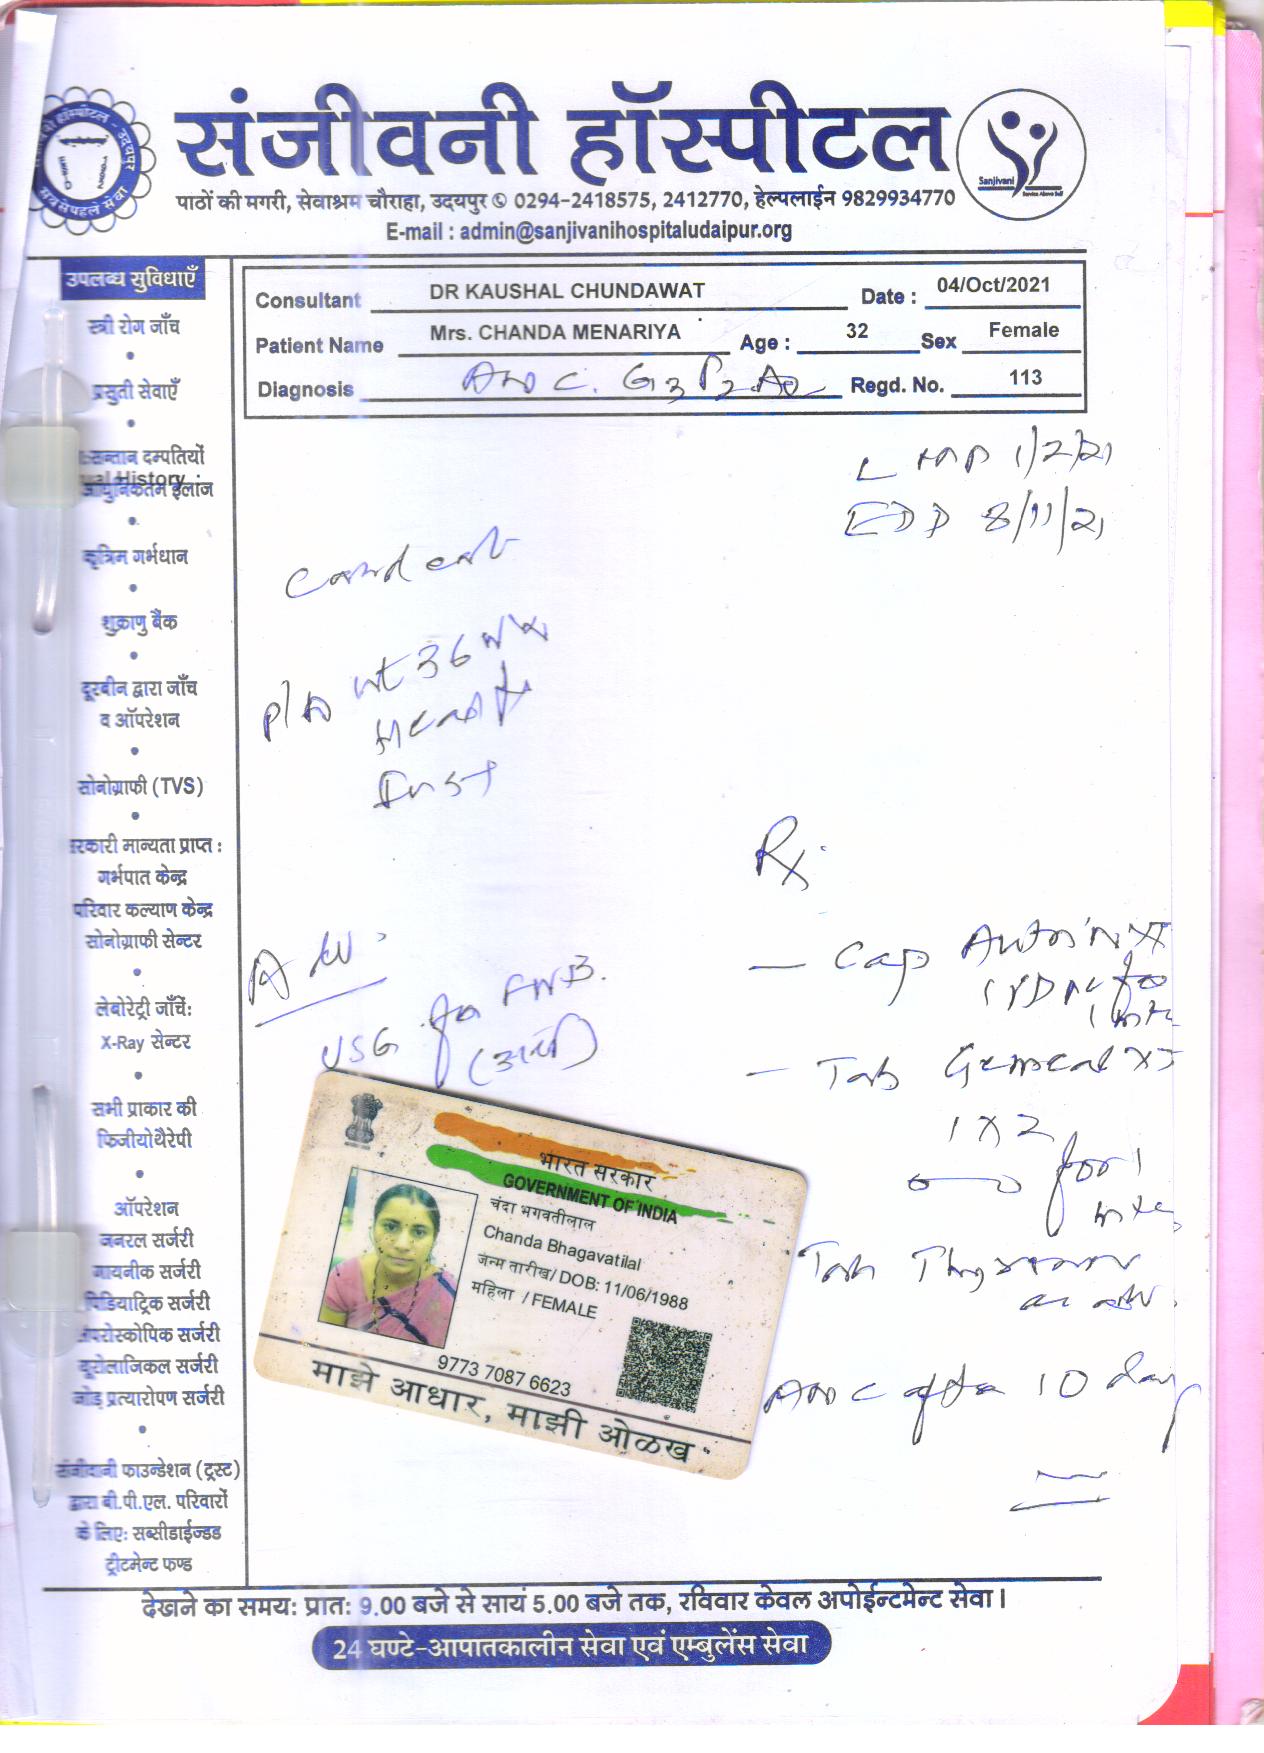 संजीवनी हॉस्पीटल
पाठों की मगरी, सेवाश्रम चौराहा, उदयपुर ✆ 0294-2418575, 2412770, हेल्पलाईन 9829934770
E-mail : admin@sanjivanihospitaludaipur.org
Sanjivani
Service Above Self
Consultant DR KAUSHAL CHUNDAWAT Date : 04/Oct/2021
Patient Name Mrs. CHANDA MENARIYA Age : 32 Sex Female
Diagnosis ANC. G3 P2 A0 Regd. No. 113
उपलब्ध सुविधाएँ
स्त्री रोग जाँच
प्रसुती सेवाएँ
सन्तान दम्पतियों
ual History :
आधुनिकतम ईलाज
कृत्रिम गर्भधान
शुक्राणु बैंक
दूरबीन द्वारा जाँच
व ऑपरेशन
सोनोग्राफी (TVS)
सरकारी मान्यता प्राप्त :
गर्भपात केन्द्र
परिवार कल्याण केन्द्र
सोनोग्राफी सेन्टर
लेबोरेट्री जाँचें:
X-Ray सेन्टर
सभी प्राकार की
फिजीयोथैरेपी
ऑपरेशन
जनरल सर्जरी
गायनीक सर्जरी
पिडियाट्रिक सर्जरी
लेप्रोस्कोपिक सर्जरी
यूरोलाजिकल सर्जरी
जोड़ प्रत्यारोपण सर्जरी
संजीवानी फाउन्डेशन (ट्रस्ट)
द्वारा बी.पी.एल. परिवारों
के लिए: सब्सीडाईज्डड
ट्रीटमेन्ट फण्ड
LMP 1/2/21
EDD 8/11/21
P/A ut 36 wk
Adv.
USG for FWB.
Rx.
- Cap Autrin XT
- Tab Gemcal XT
1 X 2
for 1
Tab
ANC after 10 day
भारत सरकार
GOVERNMENT OF INDIA
चंदा भगवतीलाल
Chanda Bhagavatilal
जन्म तारीख/ DOB: 11/06/1988
महिला / FEMALE
9773 7087 6623
माझे आधार, माझी ओळख
देखने का समय: प्रात: 9.00 बजे से सायं 5.00 बजे तक, रविवार केवल अपोईन्टमेन्ट सेवा।
24 घण्टे-आपातकालीन सेवा एवं एम्बुलेंस सेवा